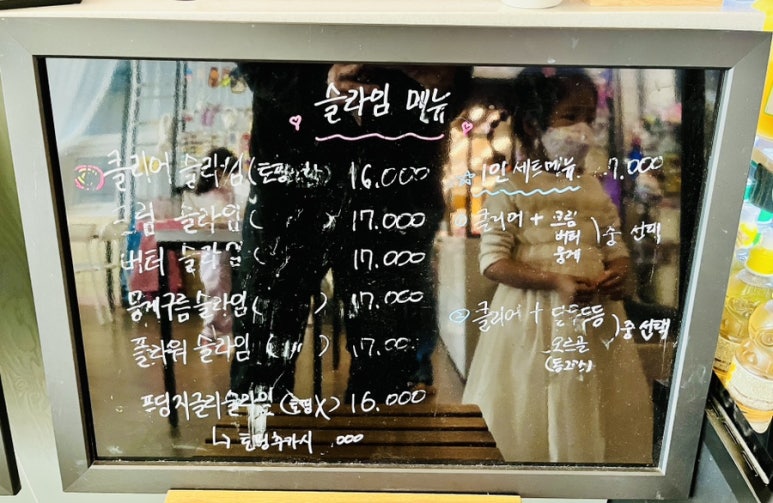 슬라임 메뉴
클리어 슬라임 (토핑 ) 16.000
크림 슬라임 ( ) 17.000
버터 슬라임 17.000
뭉게구름 슬라임 ( ) 17.000
플라워 슬라임 ( 〃 ) 17.00
푸딩지글리슬라임 (토핑X) 16.000
↳ 토핑추가시 000
1인 세트메뉴 7.000
클리어 + 크림
버터
뭉게
중 선택
클리어 +
오르골
중 선택